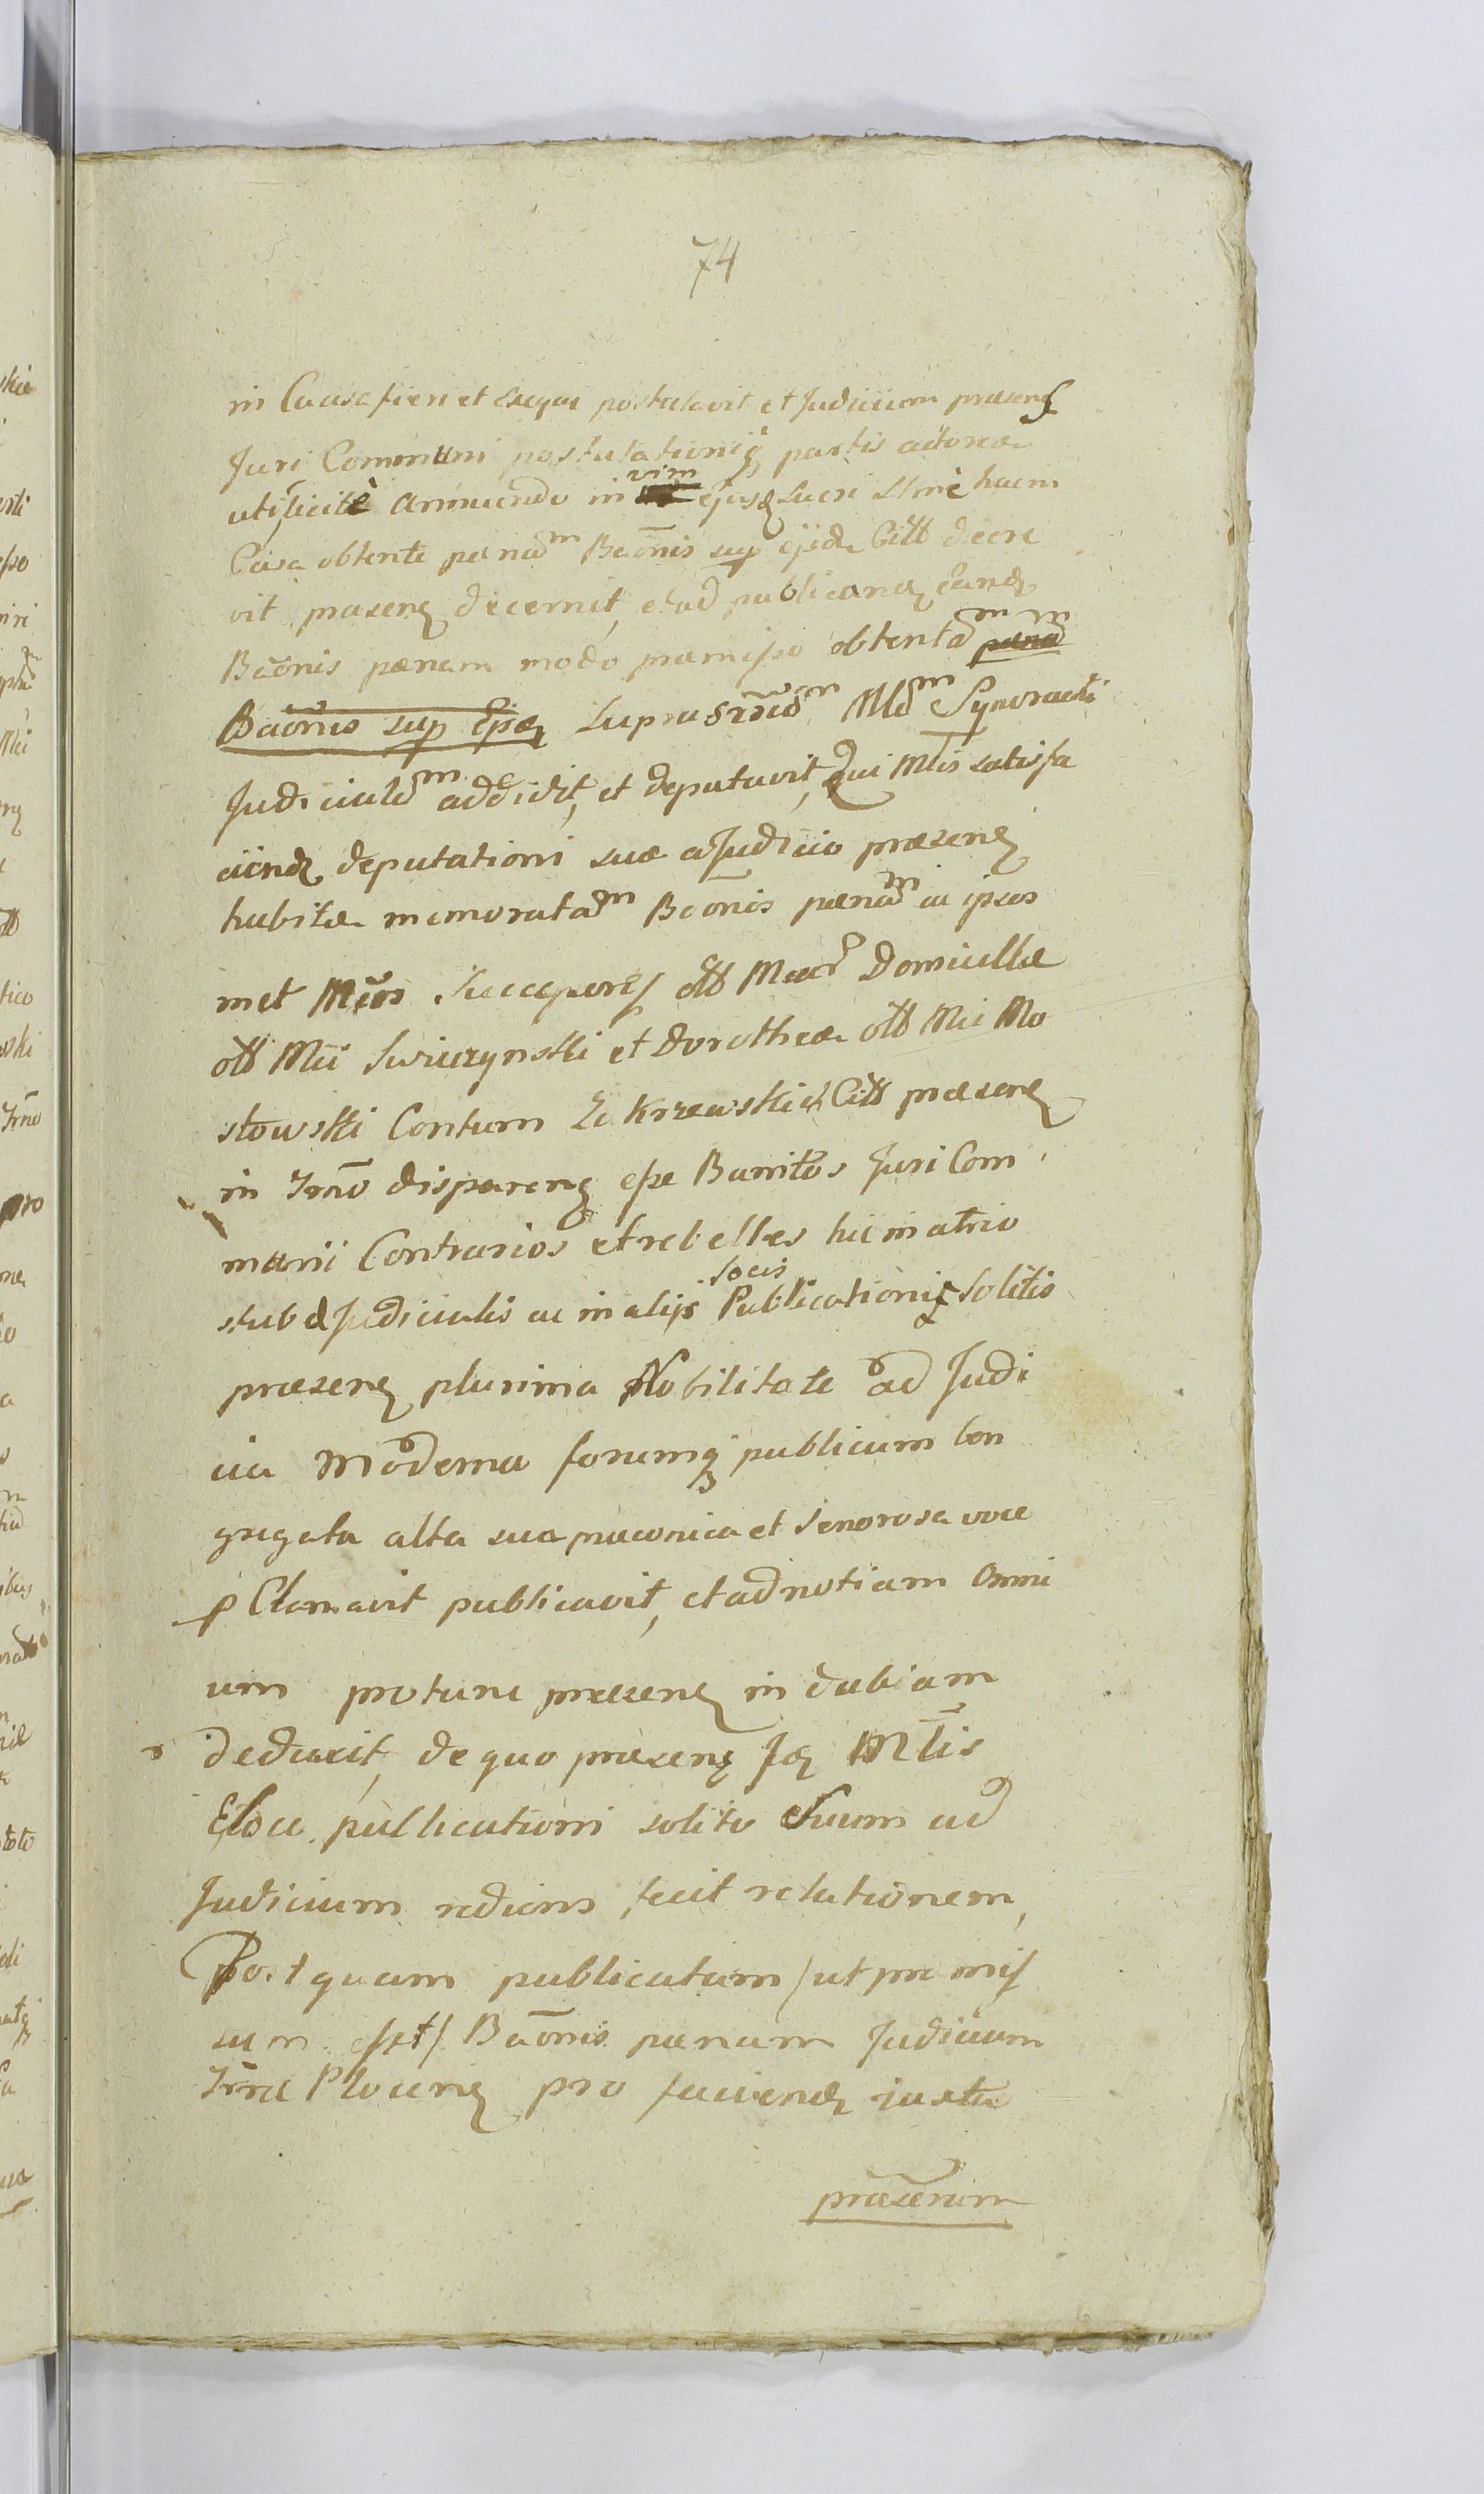 74
in Causa fieri et exequi postulavit et Judicium praesens
Juri Communi postulationiq partis actoreae
uti licitè annuendo in vim ejusq lucri hacin
Casa obtente paenam Baonis sup ejsde Citt decre
vit praesenq decernit, et ad publicandq eandq
Baonis paenam modo praemisso obtentam paenam
Baonis sup Ejsdq Suprascrum Mlem Synoracki
Judicialem addidit, et deputavit, Qui Mtis satisfa
ciendq deputationi suae a Judicio praesenq
habitae memoratam Baonis paenam in ipsos
met Mcos Successores olt Domicellae
olt Mci Swierzynski et Dorotheae olt Mci Mo
stowski Contum Zakrzewskich Citt praesenq
in Trno disparenq esse Bannitos Juri Com
muni Contrarios et rebelles hic in atrio
stubae Judicialis ac in alijs locis Publicationiq Solitis
praesenq plurima Nobilitate ad Judi
cia Moderna forumq publicum Con
gregata alta sua praeconica et Senorosa voce
pClamavit publicavit, et ad notiam Omni
um protunc praesenq indubiam
deduxit, de quo praesenq Jdq Mtis
E loco publicationi solito Suum ad
Judicium rediens fecit relationem,
Postquam publicatam /ut praemis
sum est/ Baonis paenam Judicium
Trrae Plocenq pro faciendq iusta
praesenim